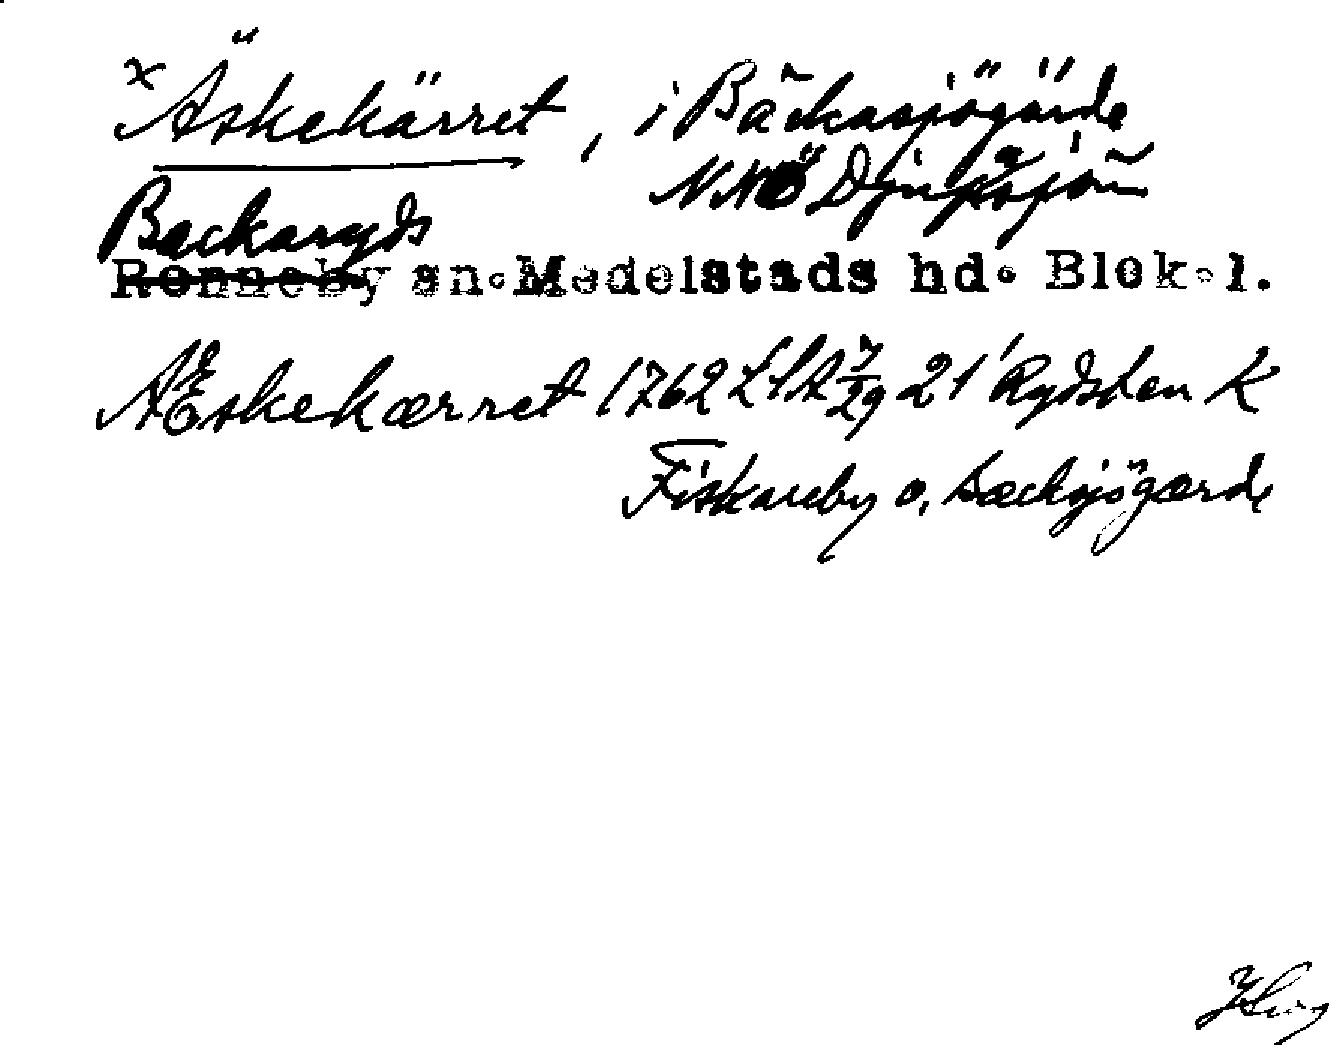 x Äskekärret, i Bäckasjögärde
NNÖ Djupasjön
Backaryds
Ronneby sn. Medelstads hd. Blek. l.
Æskekærret 1762 LSA 7/29 21 Rydsten K
Fiskareby o. bæcksjögærde